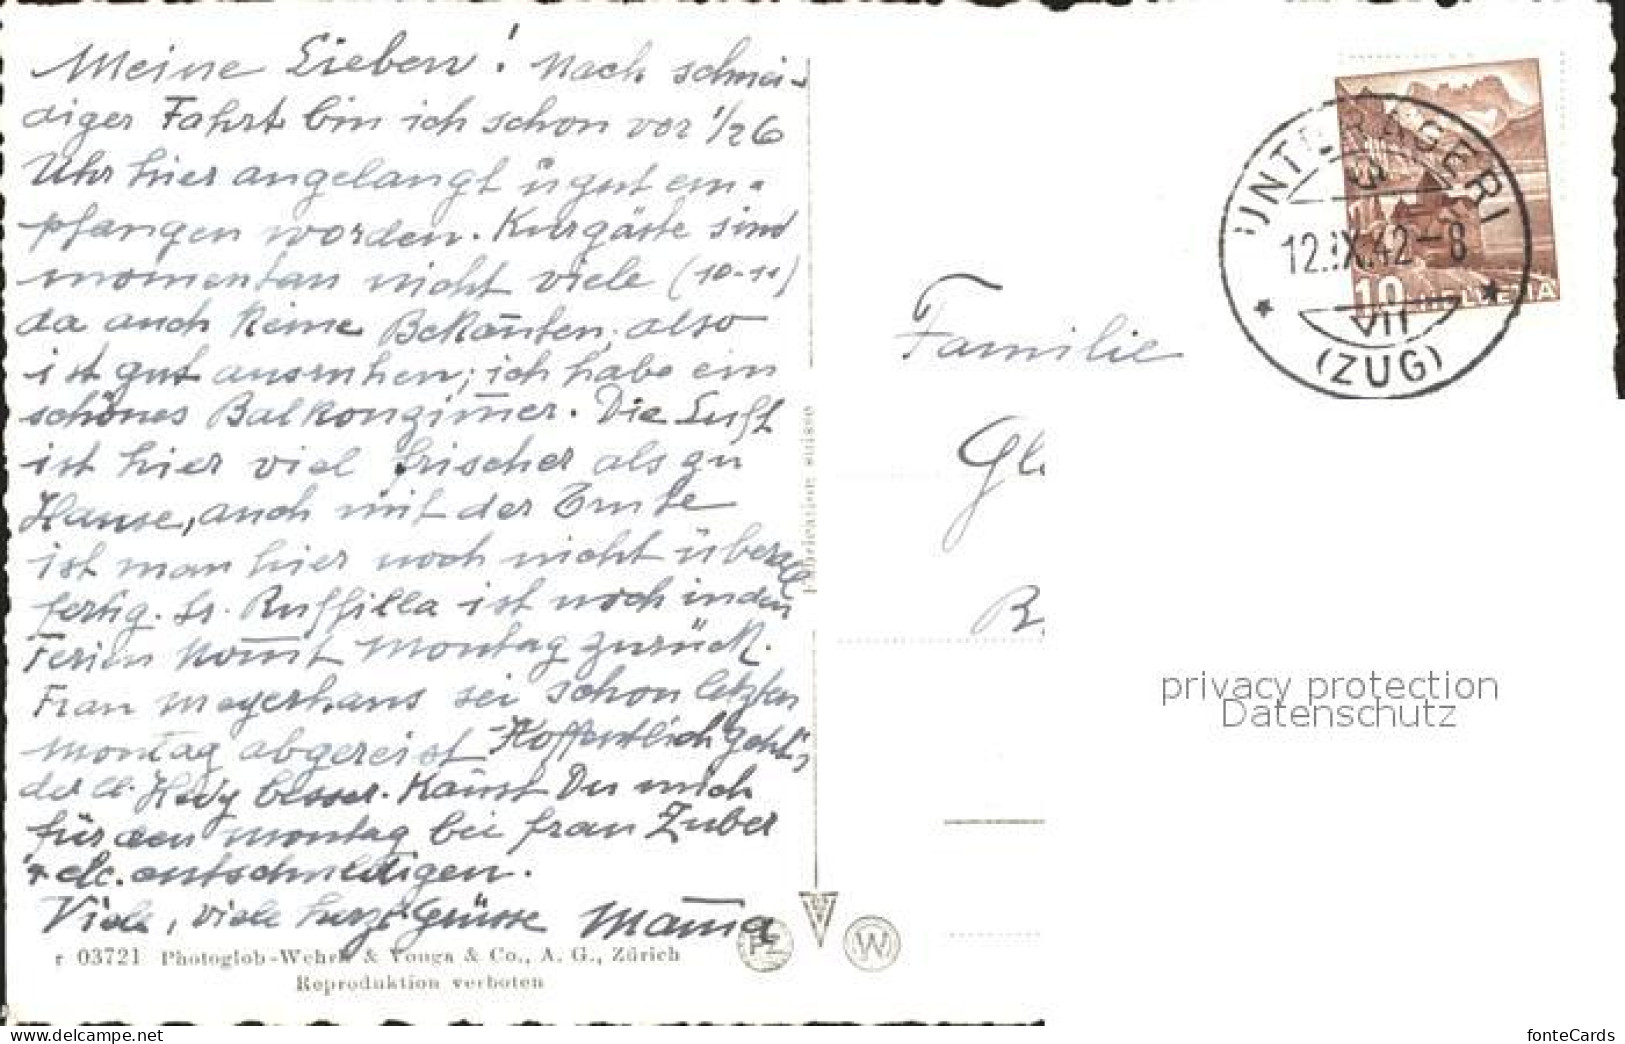 Meine Lieben! Nach schnei-
diger Fahrt bin ich schon vor 1/2 6
Uhr hier angelangt u gut em-
pfangen worden. Kurgäste sind
momentan nicht viele (10-11)
da auch keine Bekan̄ten, also
ist gut ausruhen; ich habe ein
schönes Balkonzim̄er. Die Luft
ist hier viel frischer als zu
Hause, auch mit der Ernte
ist man hier noch nicht überall
fertig. Sr. Ruffilla ist noch in den
Ferien kom̄t Montag zurück.
Frau Meyerhans sei schon letzten
Montag abgereist. Hoffentlich geht's
der lb. Hedy besser. Kan̄st Du mich
für den Montag bei Frau Zuber
etc. entschuldigen.
Viele, viele herzl. Grüsse Mam̄a
r 03721 Photoglob-Wehrli & Vouga & Co., A. G., Zürich
Reproduktion verboten
Fabrication suisse
UNTERÄGERI
12.IX.42-8
VII
(ZUG)
10 HELVETIA
Familie
Gl
B.
PZ
W
privacy protection
Datenschutz
fonteCards